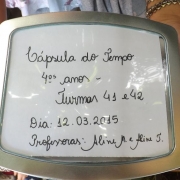 Cápsula do Tempo
4ºs anos -
Turmas 41 e 42
Dia: 12.03.2015
Professoras: Aline M. e Aline J.